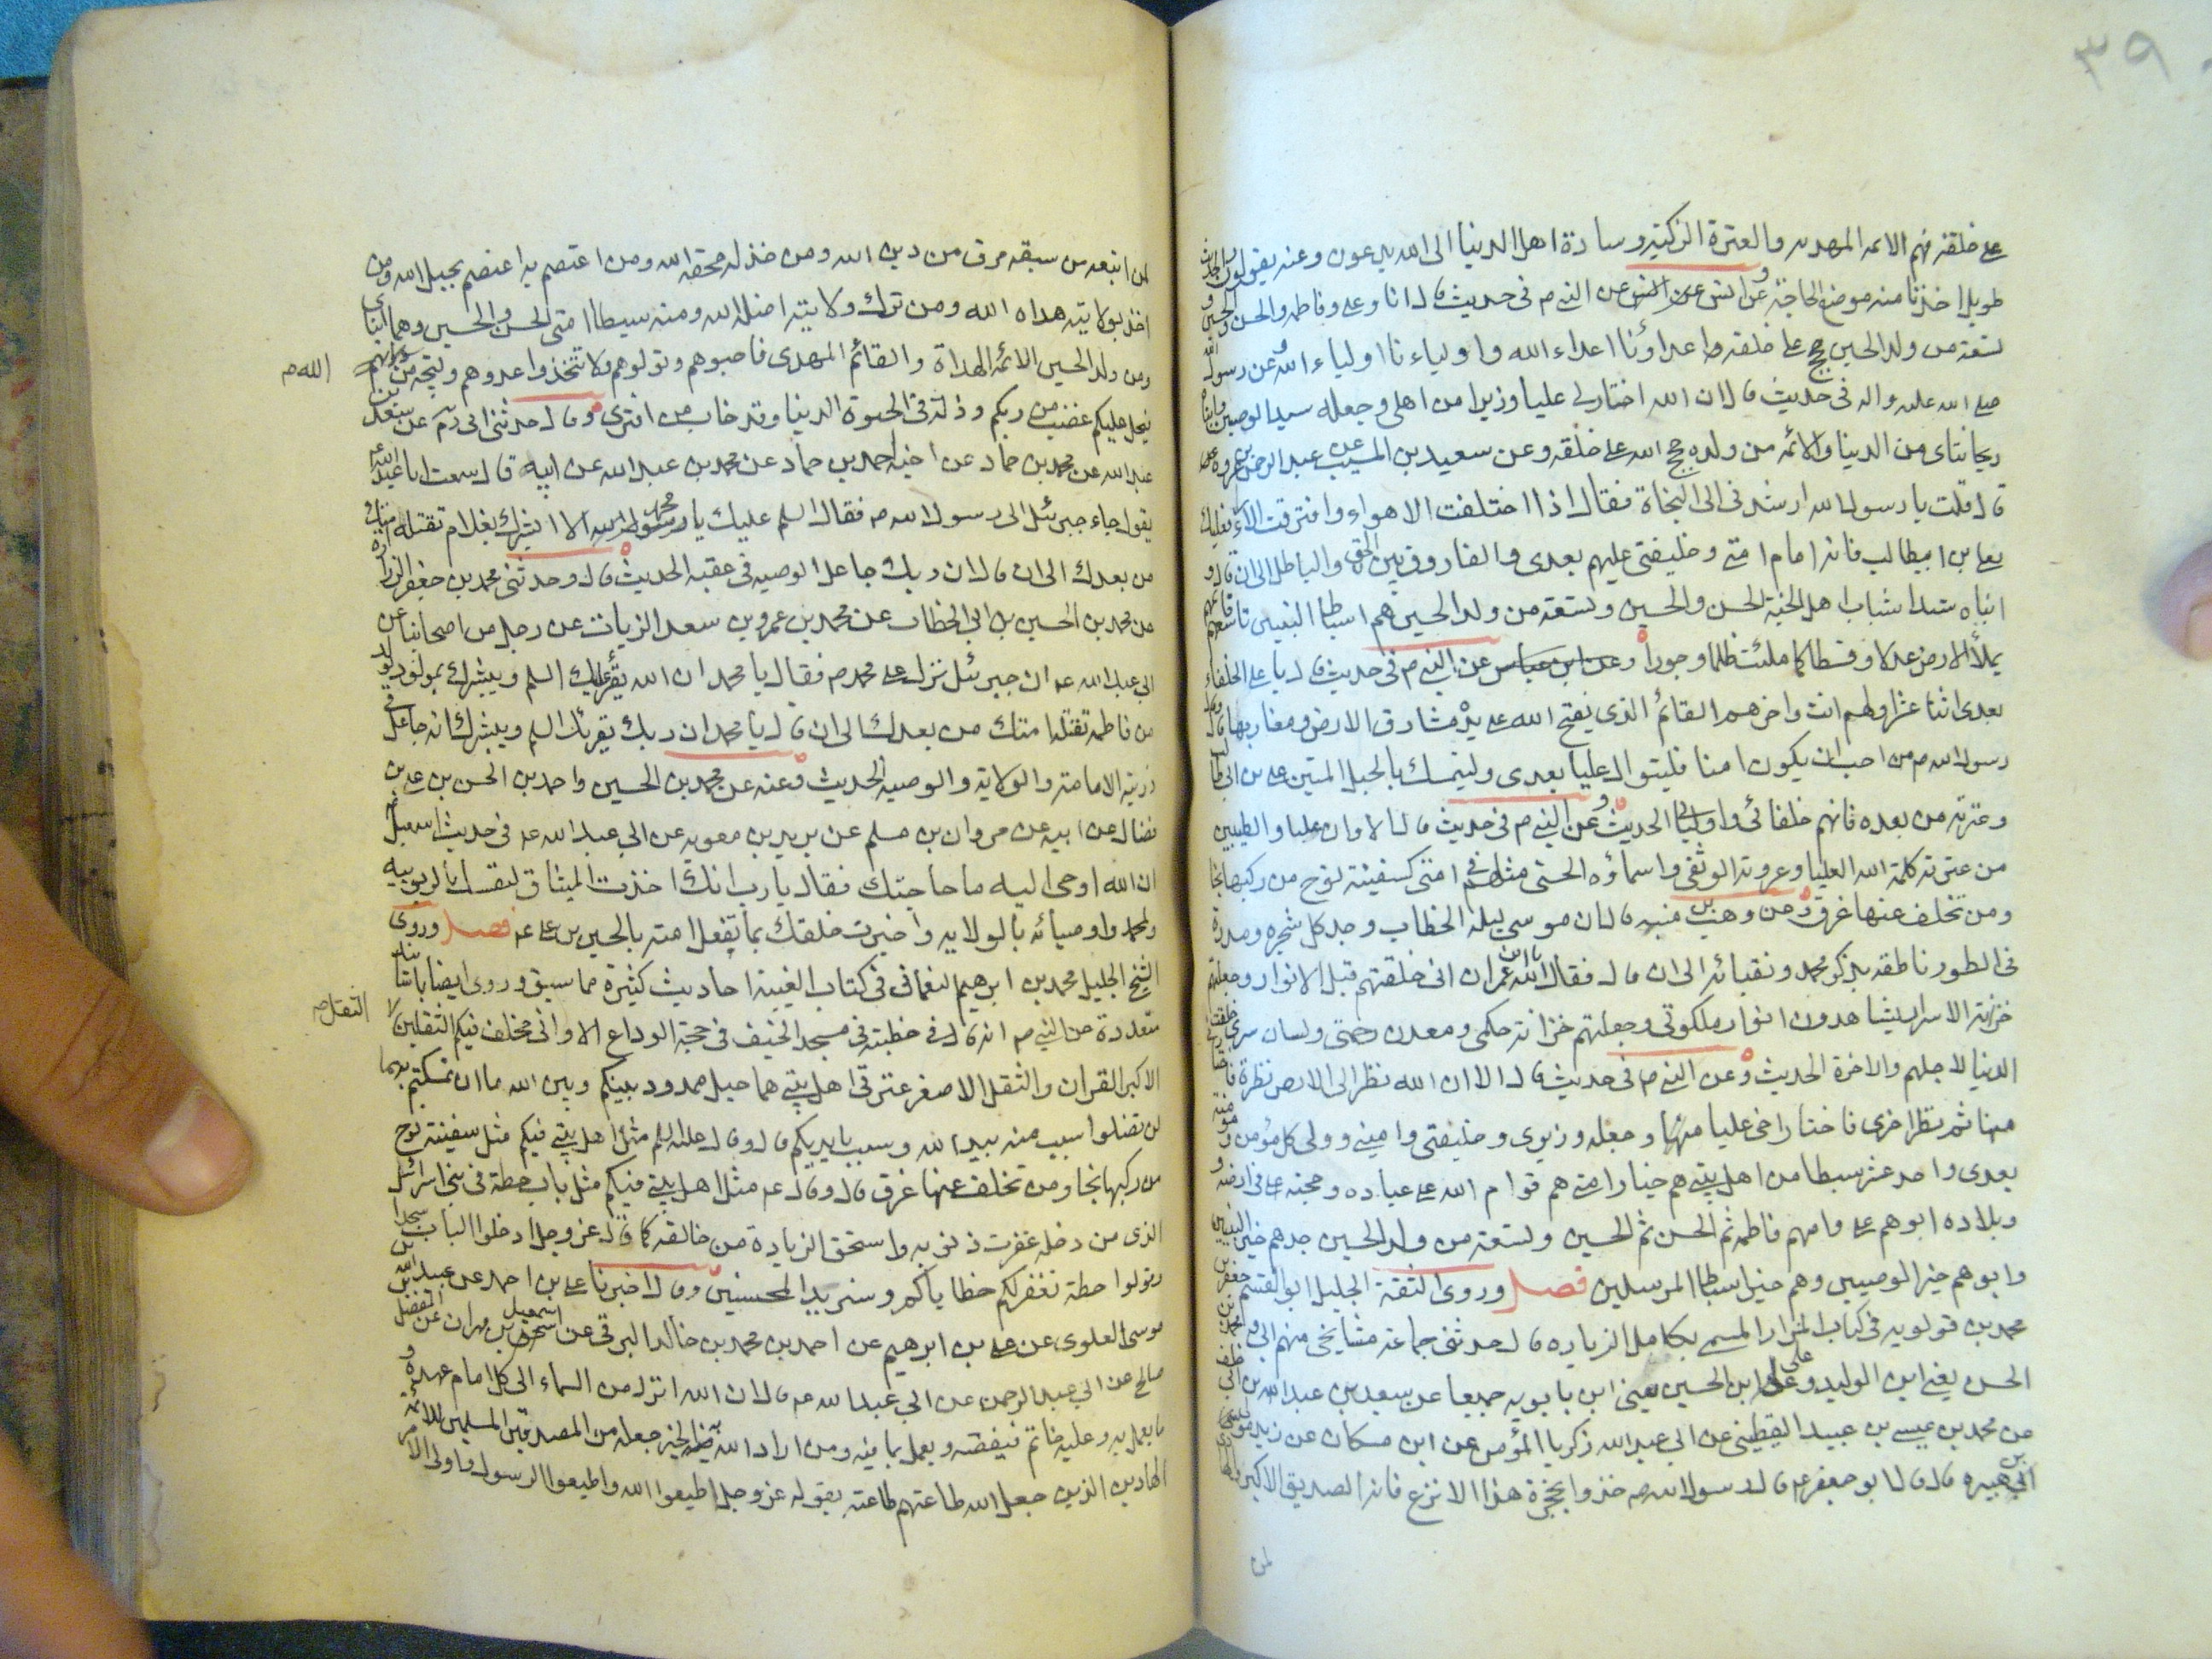 ٣٩
على خلقه فهم الائمه المهديه والعترة الزكيّه وسادة اهل الدنيا الى الله يدعون وعنه يقولون الحديث
طويل اخذنا منه موضع الحاجة وعن انس عن النبي م في حديث قال انا وعلى وفاطمه والحسن والحسين و
تسعة من ولد الحسين حجج على خلقه اعداؤنا اعداء الله واولياءنا اولياء الله وعن رسول الله
صلى الله عليه واله في حديث قال ان الله اختار لى عليا وزيرا من اهلى وجعله سيد الوصيين وابناه
ريحانتاى من الدنيا والائمه من ولده حجج الله على خلقه وعن سعيد بن المسيب عن عبد الرحمن
قال قلت يا رسول الله ارشدنى الى النجاة فقال اذا اختلفت الاهواء وافترقت الآراء فعليك
بعلى بن ابيطالب فانه امام امتى وخليفتى عليهم بعدى والفاروق بين الحق والباطل الى ان قال و
ابناه سيدا شباب اهل الجنة الحسن والحسين وتسعة من ولد الحسين هم اسباط النبيين تاسعهم قائمهم
يملأ الارض عدلا وقسطا كما ملئت ظلما وجورا وعن ابن عباس عن النبي م في حديث قال يا على الخلفاء
بعدى اثنا عشر اولهم انت واخرهم القائم الذى يفتح الله على يده مشارق الارض ومغاربها وقال
رسول الله م من احب ان يكون امنا فليتوال عليا بعدى وليتمسك بالحبل المتين على بن ابى طالب
وعترته من بعده فانهم خلفائى واوليائى الحديث وعن النبي م في حديث قال الا وان عليا والطيبين
من عترته كلمة الله العليا وعروته الوثقى واسماؤه الحسنى مثلهم في امتى كسفينة نوح من ركبها نجا
ومن تخلف عنها غرق وعن وهب بن منبه قال ان موسى ليلة الخطاب وجد كل شجره ومدرة
في الطور ناطقة بذكر محمد ونقبائه الى ان قال فقال الله يا ابن عمران انى خلقتهم قبل الانوار وجعلتهم
خزانة الاسرار يشاهدون انوار ملكوتى وجعلتهم خزانة حكمى ومعدن رحمتى ولسان سرى خلقت
الدنيا لاجلهم والاخرة الحديث وعن النبي م في حديث قال الا ان الله نظر الى الارض نظرة فاختارنى
منها ثم نظر اخرى فاختار اخى عليا منها وجعله وزيرى وخليفتى وامينى وولى كل مؤمن ومؤمنة
بعدى واحد عشر سبطا من اهل بيتى هم خيار امتى هم قوام الله على عباده وحججه على ارضه و
وبلاده ابوهم على وامهم فاطمه ثم الحسن ثم الحسين وتسعة من ولد الحسين جدهم خير النبيين
وابوهم خير الوصيين وهم خير اسباط المرسلين فصل وروى الثقة الجليل ابو القسم جعفر بن
محمد بن قولويه في كتاب المزار المسمى بكامل الزياره قال حدثنى جماعة مشايخى منهم ابى ومحمد بن
الحسن يعنى ابن الوليد وعلى ابن الحسين يعنى ابن بابويه جميعا عن سعد بن عبد الله بن ابى خلف
عن محمد بن عيسى بن عبيد اليقطينى عن ابى عبد الله زكريا المؤمن عن ابن مسكان عن زيد مولى
ابى هبيره قال قال ابو جعفر ع قال رسول الله م خذوا بحجزة هذا الانزع فانه الصديق الاكبر
لمن
لمن اتبعه من سبقه مرق من دين الله ومن خذله محقه الله ومن اعتصم به اعتصم بحبل الله ومن
اخذ بولايته هداه الله ومن ترك ولايته اضله الله ومنه سبطا امتى الحسن والحسين وهما ابناى
ومن ولد الحسين الائمة الهداة والقائم المهدى فاحبوهم وتولوهم ولا تتخذوا عدوهم وليجة من دونهم
الله م
فيحل عليكم غضب من ربكم وذلة في الحيوة الدنيا وقد خاب من افترى وقال حدثنى ابى ره عن سعد بن
عبد الله عن محمد بن حماد عن اخيه احمد بن حماد عن محمد بن عبد الله عن ابيه قال سمعت ابا عبد الله ع
يقول جاء جبرئيل الى رسول الله م فقال السلم عليك يا محمد الا ابشرك بغلام تقتله امتك
من بعدك الى ان قال ان ربك جاعل الوصيه في عقبه الحديث قال وحدثنى محمد بن جعفر الرزاز
عن محمد بن الحسين بن ابى الخطاب عن محمد بن عمرو بن سعد الزيات عن رجل من اصحابنا عن
ابى عبد الله ع ان جبرئيل نزل على محمد م فقال يا محمد ان الله يقرأ عليك السلم ويبشرك بمولود يولد
من فاطمه تقتله امتك من بعدك الى ان قال يا محمد ان ربك يقرئك السلم ويبشرك انه جاعل في
ذريته الامامة والولاية والوصيه الحديث وعنه عن محمد بن الحسين واحمد بن الحسن بن على بن
فضال عن ابيه عن مروان بن مسلم عن بريد بن معويه عن ابى عبد الله ع في حديث اسمعيل
ان الله اوحى اليه ما حاجتك فقال يا رب انك اخذت الميثاق لنفسك بالربوبيه
ولمحمد واوصيائه بالولايه واخبرت خلقك بما تفعل امته بالحسين بن على ع فصل وروى
الشيخ الجليل محمد بن ابرهيم النعمانى في كتاب الغيبة احاديث كثيرة مما سبق وروى ايضا باسناد
متعددة عن النبي م انه قال في خطبته في مسجد الخيف في حجة الوداع الا وانى مخلف فيكم الثقلين
الثقل ص
الاكبر القران والثقل الاصغر عترتى اهل بيتى هما حبل ممدود بينكم وبين الله ما ان تمسكتم بهما
لن تضلوا سبب منه بيد الله وسبب بايديكم قال وقال عليه السلم مثل اهل بيتى فيكم مثل سفينة نوح
من ركبها نجا ومن تخلف عنها غرق قال وقال ع مثل اهل بيتى فيكم مثل باب حطة في بنى اسرائيل
الذى من دخله غفرت ذنوبه واستحق الزيادة من خالقه كما قال عز وجل ادخلوا الباب سجدا
وقولوا حطة نغفر لكم خطاياكم وسنزيد المحسنين وقال اخبرنا على بن احمد عن عبيد الله بن
موسى العلوى عن على بن ابرهيم عن احمد بن محمد بن خالد البرقى عن اسمعيل بن مهران عن المفضل بن
صالح عن ابى عبد الرحمن عن ابى عبد الله ع قال ان الله انزل من السماء الى كل امام عهده و
ما يعمل به وعليه خاتم فيفضه ويعمل بما فيه ومن اراد الله به الخير جعله من المصدقين المسلمين للائمة
الهادين الذين جعل الله طاعتهم طاعته بقوله عز وجل اطيعوا الله واطيعوا الرسول واولى الامر